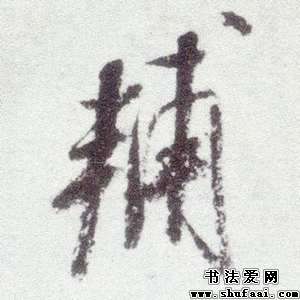 輔
书法爱网
www.shufaai.com